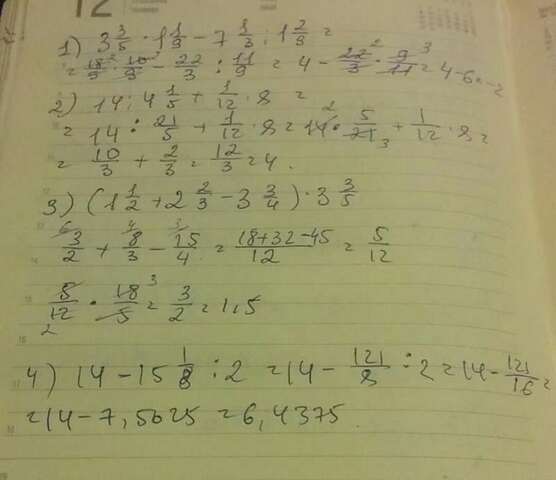 12
1) 3 3/5 · 1 1/9 - 7 1/3 : 1 2/9 =
= 18/5 · 10/9 - 22/3 : 11/9 = 4 - 22/3 · 9/11 = 4 - 6 = -2
2) 14 : 4 1/5 + 1/12 · 8 =
= 14 : 21/5 + 1/12 · 8 = 14 · 5/21 + 1/12 · 8 =
= 10/3 + 2/3 = 12/3 = 4.
3) (1 1/2 + 2 2/3 - 3 3/4) · 3 3/5
3/2 + 8/3 - 15/4 = 18+32-45/12 = 5/12
5/12 · 18/5 = 3/2 = 1,5
4) 14 - 15 1/8 : 2 = 14 - 121/8 : 2 = 14 - 121/16 =
= 14 - 7,5625 = 6,4375